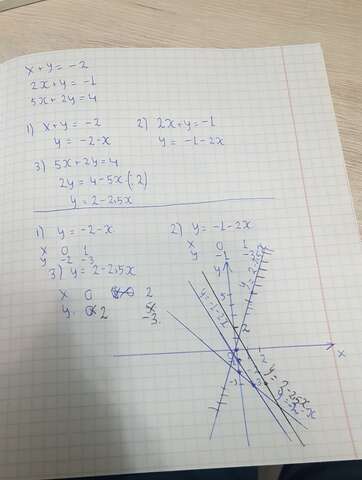 x + y = -2
2x + y = -1
5x + 2y = 4
1) x + y = -2
y = -2 - x
2) 2x + y = -1
y = -1 - 2x
3) 5x + 2y = 4
2y = 4 - 5x (:2)
y = 2 - 2,5x
1) y = -2 - x
x 0 1
y -2 -3
2) y = -1 - 2x
x 0 1
y -1 -3
3) y = 2 - 2,5x
x 0 2
y 2 -3
y
y = -1 - 2x
2
x
y = 2 - 2,5x
y = -2 - x